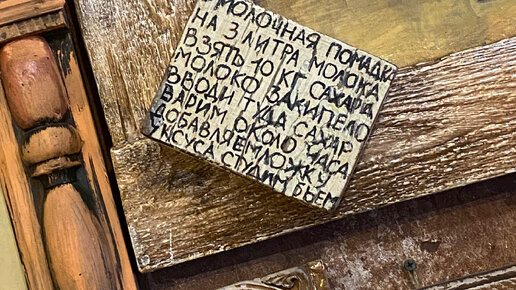 МОЛОЧНАЯ ПОМАДКА
НА 3 ЛИТРА МОЛОКА
ВЗЯТЬ 10 КГ САХАРА
МОЛОКО ЗАКИПЕЛО
ВВОДИ ТУДА САХАР
ВАРИМ ОКОЛО ЧАСА
ДОБАВЛЯЕМ ЛОЖКУ
УКСУСА СТУДИМ БЬЕМ